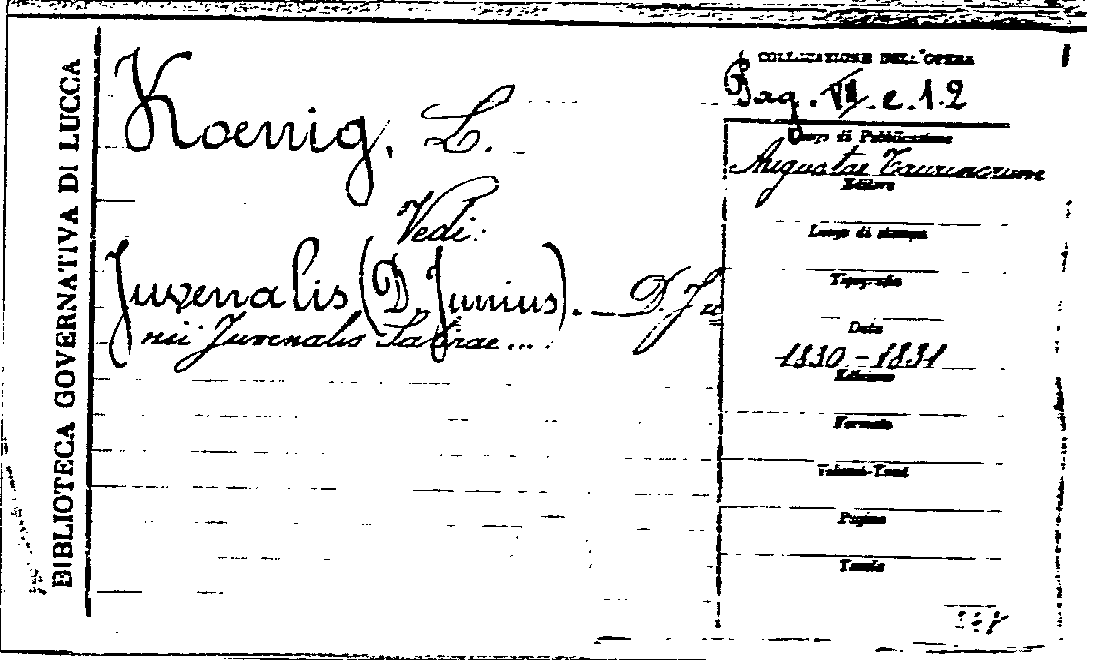 BIBLIOTECA GOVERNATIVA DI LUCCA
Koenig, L.
Vedi:
Juvenalis (D. Junius). _ D. Ju
nii Juvenalis Satirae ... .
COLLOCAZIONE DELL'OPERA
Pag. VII. e. 1. 2
Luogo di Pubblicazione
Augustae Taurinorum
Editore
Luogo di stampa
Tipografia
Data
1830 - 1831
Edizione
Formato
Volumi-Tomi
Pagine
Tavole